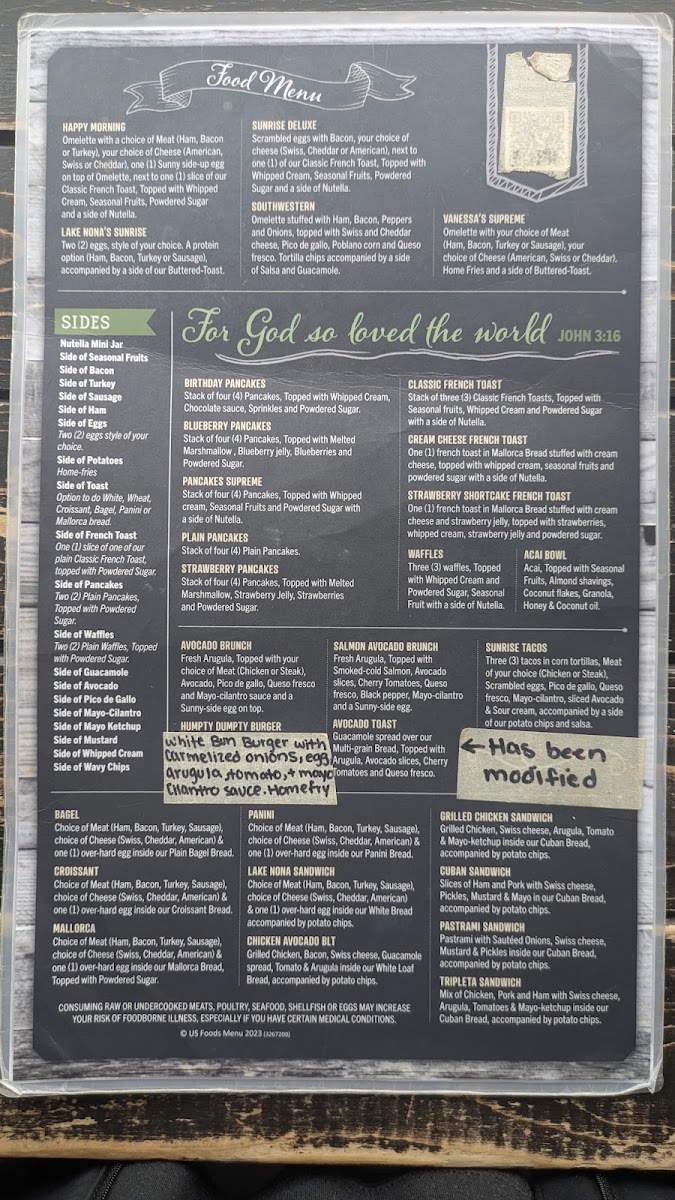 Food Menu
HAPPY MORNING
Omelette with a choice of Meat (Ham, Bacon
or Turkey), your choice of Cheese (American,
Swiss or Cheddar), one (1) Sunny side-up egg
on top of Omelette, next to one (1) slice of our
Classic French Toast, Topped with Whipped
Cream, Seasonal Fruits, Powdered Sugar
and a side of Nutella.
LAKE NONA'S SUNRISE
Two (2) eggs, style of your choice. A protein
option (Ham, Bacon, Turkey or Sausage),
accompanied by a side of our Buttered-Toast.
SUNRISE DELUXE
Scrambled eggs with Bacon, your choice of
cheese (Swiss, Cheddar or American), next to
one (1) of our Classic French Toast, Topped with
Whipped Cream, Seasonal Fruits, Powdered
Sugar and a side of Nutella.
SOUTHWESTERN
Omelette stuffed with Ham, Bacon, Peppers
and Onions, topped with Swiss and Cheddar
cheese, Pico de gallo, Poblano corn and Queso
fresco. Tortilla chips accompanied by a side
of Salsa and Guacamole.
VANESSA'S SUPREME
Omelette with your choice of Meat
(Ham, Bacon, Turkey or Sausage), your
choice of Cheese (American, Swiss or Cheddar).
Home Fries and a side of Buttered-Toast.
SIDES
Nutella Mini Jar
Side of Seasonal Fruits
Side of Bacon
Side of Turkey
Side of Sausage
Side of Ham
Side of Eggs
Two (2) eggs style of your
choice.
Side of Potatoes
Home-fries
Side of Toast
Option to do White, Wheat,
Croissant, Bagel, Panini or
Mallorca bread.
Side of French Toast
One (1) slice of one of our
plain Classic French Toast,
topped with Powdered Sugar.
Side of Pancakes
Two (2) Plain Pancakes,
Topped with Powdered
Sugar.
Side of Waffles
Two (2) Plain Waffles, Topped
with Powdered Sugar.
Side of Guacamole
Side of Avocado
Side of Pico de Gallo
Side of Mayo-Cilantro
Side of Mayo Ketchup
Side of Mustard
Side of Whipped Cream
Side of Wavy Chips
For God so loved the world JOHN 3:16
BIRTHDAY PANCAKES
Stack of four (4) Pancakes, Topped with Whipped Cream,
Chocolate sauce, Sprinkles and Powdered Sugar.
BLUEBERRY PANCAKES
Stack of four (4) Pancakes, Topped with Melted
Marshmallow , Blueberry jelly, Blueberries and
Powdered Sugar.
PANCAKES SUPREME
Stack of four (4) Pancakes, Topped with Whipped
cream, Seasonal Fruits and Powdered Sugar with
a side of Nutella.
PLAIN PANCAKES
Stack of four (4) Plain Pancakes.
STRAWBERRY PANCAKES
Stack of four (4) Pancakes, Topped with Melted
Marshmallow, Strawberry Jelly, Strawberries
and Powdered Sugar.
CLASSIC FRENCH TOAST
Stack of three (3) Classic French Toasts, Topped with
Seasonal fruits, Whipped Cream and Powdered Sugar
with a side of Nutella.
CREAM CHEESE FRENCH TOAST
One (1) french toast in Mallorca Bread stuffed with cream
cheese, topped with whipped cream, seasonal fruits and
powdered sugar with a side of Nutella.
STRAWBERRY SHORTCAKE FRENCH TOAST
One (1) french toast in Mallorca Bread stuffed with cream
cheese and strawberry jelly, topped with strawberries,
whipped cream, strawberry jelly and powdered sugar.
WAFFLES
Three (3) waffles, Topped
with Whipped Cream and
Powdered Sugar, Seasonal
Fruit with a side of Nutella.
ACAI BOWL
Acai, Topped with Seasonal
Fruits, Almond shavings,
Coconut flakes, Granola,
Honey & Coconut oil.
AVOCADO BRUNCH
Fresh Arugula, Topped with your
choice of Meat (Chicken or Steak),
Avocado, Pico de gallo, Queso fresco
and Mayo-cilantro sauce and a
Sunny-side egg on top.
HUMPTY DUMPTY BURGER
White Bun Burger with
Carmelized onions, egg
arugula, tomato, + mayo
Cilantro sauce. Homefry
SALMON AVOCADO BRUNCH
Fresh Arugula, Topped with
Smoked-cold Salmon, Avocado
slices, Cherry Tomatoes, Queso
fresco, Black pepper, Mayo-cilantro
and a Sunny-side egg.
AVOCADO TOAST
Guacamole spread over our
Multi-grain Bread, Topped with
Arugula, Avocado slices, Cherry
Tomatoes and Queso fresco.
SUNRISE TACOS
Three (3) tacos in corn tortillas, Meat
of your choice (Chicken or Steak),
Scrambled eggs, Pico de gallo, Queso
fresco, Mayo-cilantro, sliced Avocado
& Sour cream, accompanied by a side
of our potato chips and salsa.
← Has been
modified
BAGEL
Choice of Meat (Ham, Bacon, Turkey, Sausage),
choice of Cheese (Swiss, Cheddar, American) &
one (1) over-hard egg inside our Plain Bagel Bread.
CROISSANT
Choice of Meat (Ham, Bacon, Turkey, Sausage),
choice of Cheese (Swiss, Cheddar, American) &
one (1) over-hard egg inside our Croissant Bread.
MALLORCA
Choice of Meat (Ham, Bacon, Turkey, Sausage),
choice of Cheese (Swiss, Cheddar, American) &
one (1) over-hard egg inside our Mallorca Bread,
Topped with Powdered Sugar.
PANINI
Choice of Meat (Ham, Bacon, Turkey, Sausage),
choice of Cheese (Swiss, Cheddar, American) &
one (1) over-hard egg inside our Panini Bread.
LAKE NONA SANDWICH
Choice of Meat (Ham, Bacon, Turkey, Sausage),
choice of Cheese (Swiss, Cheddar, American)
& one (1) over-hard egg inside our White Bread
accompanied by potato chips.
CHICKEN AVOCADO BLT
Grilled Chicken, Bacon, Swiss cheese, Guacamole
spread, Tomato & Arugula inside our White Loaf
Bread, accompanied by potato chips.
GRILLED CHICKEN SANDWICH
Grilled Chicken, Swiss cheese, Arugula, Tomato
& Mayo-ketchup inside our Cuban Bread,
accompanied by potato chips.
CUBAN SANDWICH
Slices of Ham and Pork with Swiss cheese,
Pickles, Mustard & Mayo in our Cuban Bread,
accompanied by potato chips.
PASTRAMI SANDWICH
Pastrami with Sautéed Onions, Swiss cheese,
Mustard & Pickles inside our Cuban Bread,
accompanied by potato chips.
TRIPLETA SANDWICH
Mix of Chicken, Pork and Ham with Swiss cheese,
Arugula, Tomatoes & Mayo-ketchup inside our
Cuban Bread, accompanied by potato chips.
CONSUMING RAW OR UNDERCOOKED MEATS, POULTRY, SEAFOOD, SHELLFISH OR EGGS MAY INCREASE
YOUR RISK OF FOODBORNE ILLNESS, ESPECIALLY IF YOU HAVE CERTAIN MEDICAL CONDITIONS.
© US Foods Menu 2023 (3267208)